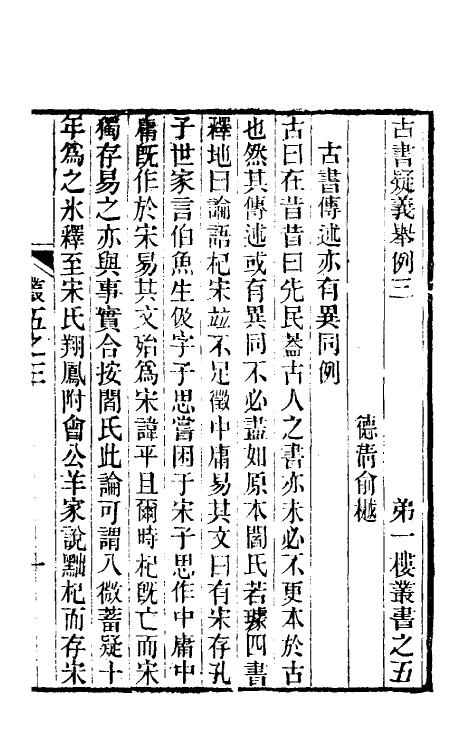 古書疑義舉例三　第一樓叢書之五
德淸俞樾
古書傳述亦有異同例
古曰在昔昔曰先民葢古人之書亦未必不更本於古
也然其傳述或有異同不必盡如原本閻氏若璩四書
釋地曰論語杞宋竝不足徵中庸易其文曰有宋存孔
子世家言伯魚生伋字子思嘗困于宋子思作中庸中
庸旣作於宋易其文殆爲宋諱乎且爾時杞旣亡而宋
獨存易之亦與事實合按閻氏此論可謂入微蓄疑十
年爲之氷釋至宋氏翔鳳附會公羊家說黜杞而存宋
叢五之三　一